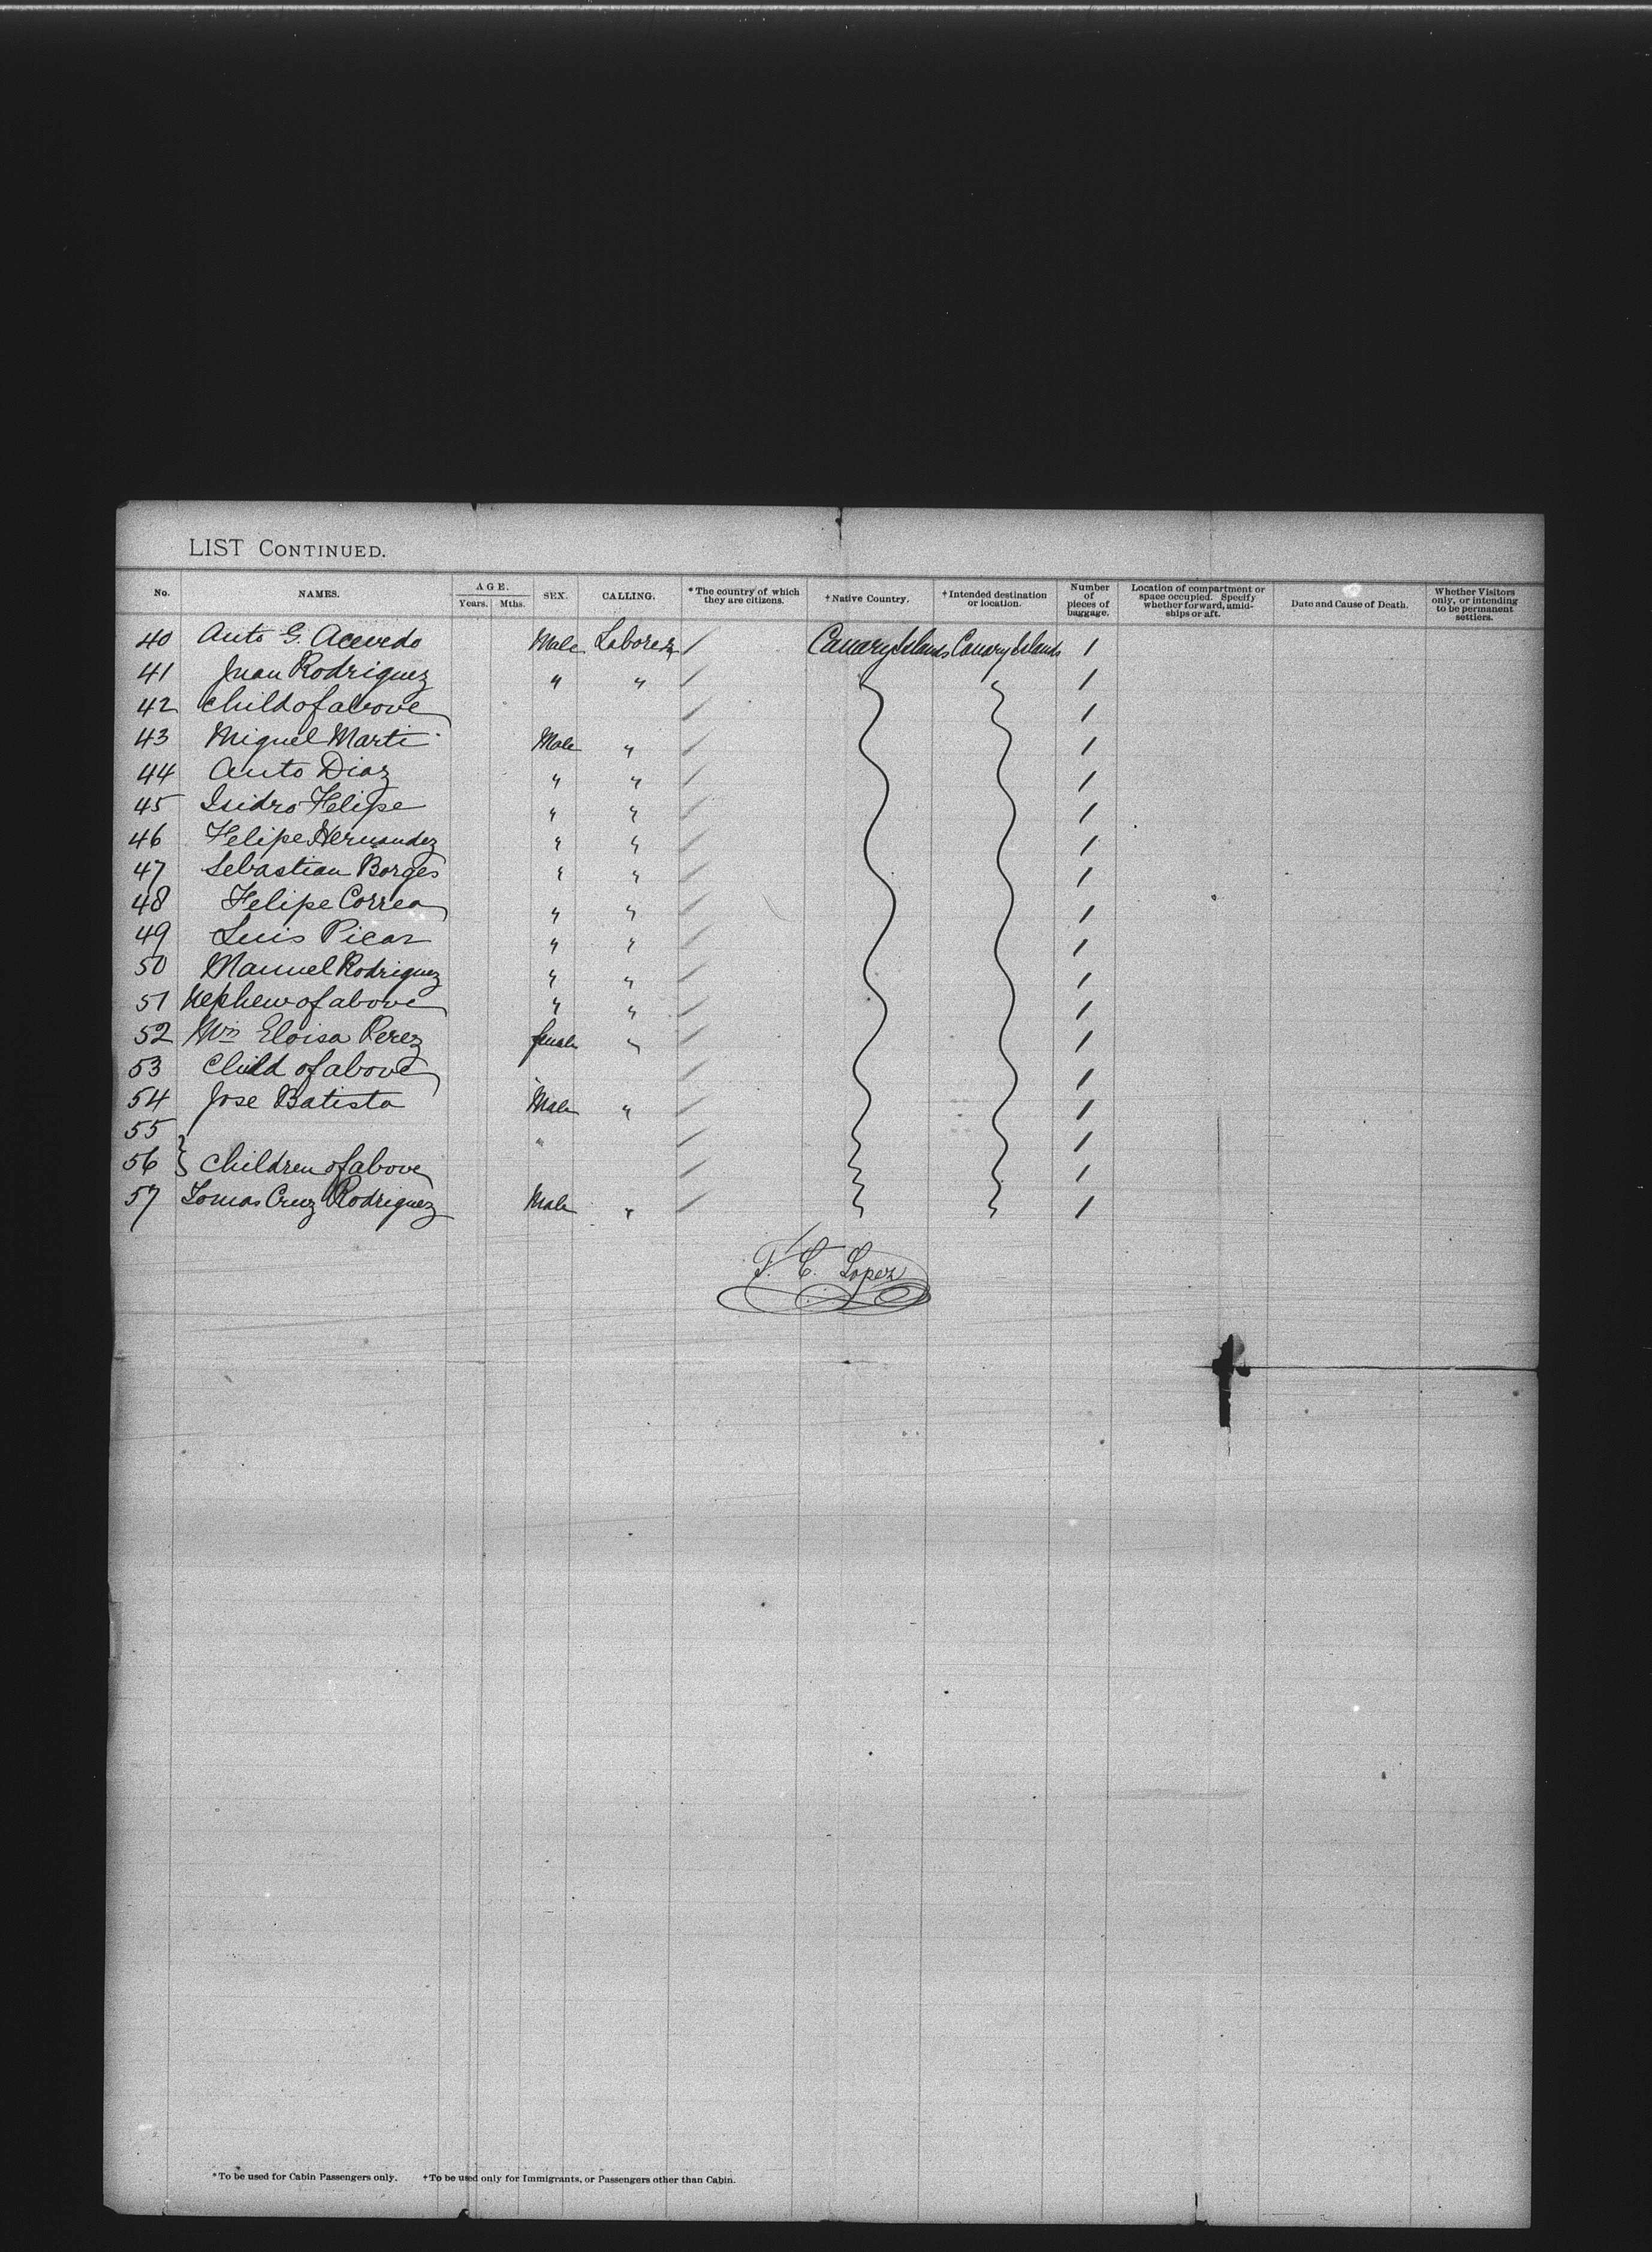 LIST CONTINUED.
No. NAMES. AGE. Years. Mths. SEX. CALLING. *The country of which they are citizens. †Native Country. †Intended destination or location. Number of pieces of baggage. Location of compartment or space occupied. Specify whether forward, amidships or aft. Date and Cause of Death. Whether Visitors only, or intending to be permanent settlers.
40 Anto G. Acevedo Male Laborer / Canary Islands Canary Islands 1
41 Juan Rodriguez " " / 1
42 Child of above / 1
43 Miguel Marti Male " / 1
44 Anto Diaz " " / 1
45 Isidro Felipe " " / 1
46 Felipe Hernandez " " / 1
47 Sebastian Borges " " / 1
48 Felipe Correa " " / 1
49 Luis Picar " " / 1
50 Manuel Rodriguez " " / 1
51 Nephew of above " " / 1
52 Eloisa Perez female " / 1
53 Child of above / 1
54 Jose Batista Male " / 1
55 " / 1
56 } Children of above / 1
57 Tomas Cruz Rodriguez Male " / 1
F. C. Lopez
*To be used for Cabin Passengers only. †To be used only for Immigrants, or Passengers other than Cabin.